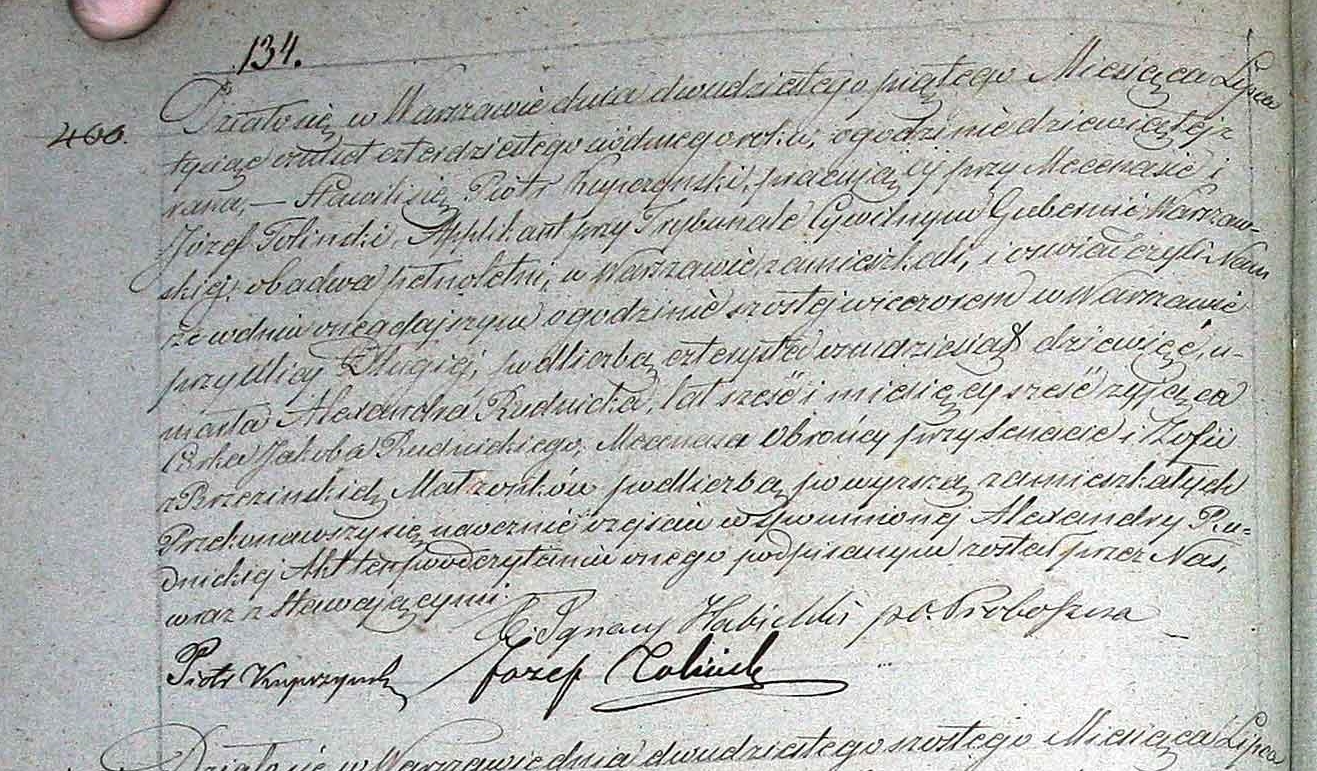 134.
400.
Działo się w Warszawie dnia dwudziestego piątego Miesiąca Lipca
tysiąc ośmset czterdziestego siódmego roku, o godzinie dziewiątej z
rana, — Stawili się Piotr Kuprzynski, pracujący przy Mecenasie i
Józef Tolinski, Applikant przy Trybunale Cywilnym Gubernii Warszaw-
skiej, obadwa pełnoletni, w Warszawie zamieszkali, i oświadczyli Nam
że w dniu onegdajszym o godzinie szostej wieczorem w Warszawie
przy Ulicy Długiej, pod liczbą czterysta ośmdziesiąt dziewięć, u-
marła Alexandra Rudnicka, lat sześć i miesięcy sześć żyjąca
Córka Jakóba Rudnickiego, Mecenasa Obrońcy przy Senacie i Zofii
z Brzezinskich Małżonków pod liczbą powyższą zamieszkałych
Przekonawszy się naocznie o zejściu wspomnionej Alexandry Ru-
dnickiej Akt ten po odczytaniu onego podpisanym został przez Nas,
wraz z Stawającymi.
X. Ignacy Habicki p.o. Proboszcza
Piotr Kuprzynski Jozef Tolinski
Działo się w Warszawie dnia dwudziestego szostego Miesiąca Lipca